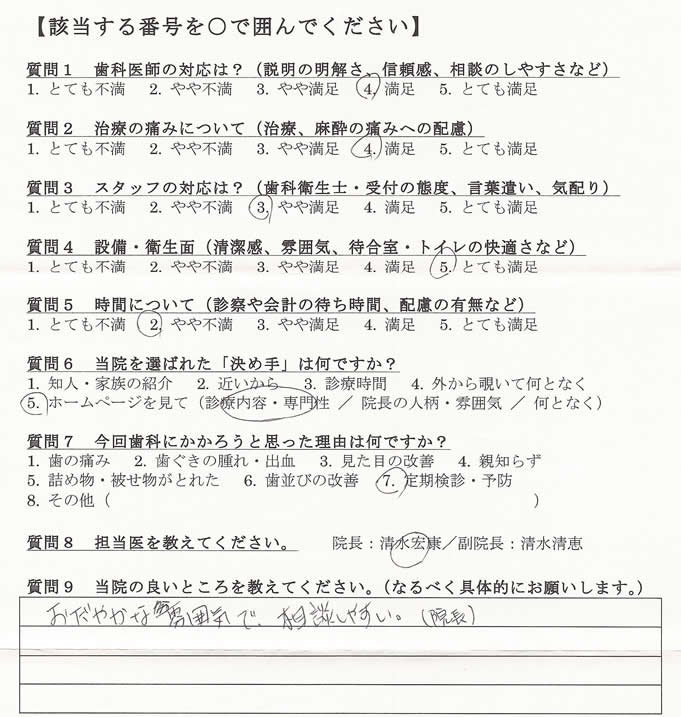 【該当する番号を〇で囲んでください】
質問１　歯科医師の対応は？（説明の明解さ、信頼感、相談のしやすさなど）
1. とても不満　2. やや不満　3. やや満足　4. 満足　5. とても満足
質問２　治療の痛みについて（治療、麻酔の痛みへの配慮）
1. とても不満　2. やや不満　3. やや満足　4. 満足　5. とても満足
質問３　スタッフの対応は？（歯科衛生士・受付の態度、言葉遣い、気配り）
1. とても不満　2. やや不満　3. やや満足　4. 満足　5. とても満足
質問４　設備・衛生面（清潔感、雰囲気、待合室・トイレの快適さなど）
1. とても不満　2. やや不満　3. やや満足　4. 満足　5. とても満足
質問５　時間について（診察や会計の待ち時間、配慮の有無など）
1. とても不満　2. やや不満　3. やや満足　4. 満足　5. とても満足
質問６　当院を選ばれた「決め手」は何ですか？
1. 知人・家族の紹介　2. 近いから　3. 診療時間　4. 外から覗いて何となく
5. ホームページを見て（診療内容・専門性 ／ 院長の人柄・雰囲気 ／ 何となく）
質問７　今回歯科にかかろうと思った理由は何ですか？
1. 歯の痛み　2. 歯ぐきの腫れ・出血　3. 見た目の改善　4. 親知らず
5. 詰め物・被せ物がとれた　6. 歯並びの改善　7. 定期検診・予防
8. その他（　　　　　　　　　　　　　　　　　　　　　　　　）
質問８　担当医を教えてください。　院長：清水宏康／副院長：清水清恵
質問９　当院の良いところを教えてください。（なるべく具体的にお願いします。）
おだやかな雰囲気で、相談しやすい。（院長）